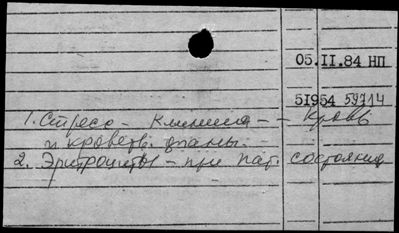 05.II.84 НП
51954 59714
1. Стресс - Клиника - - Кровь
и кроветв. органы.
2. Эритроциты - при пат. состояния